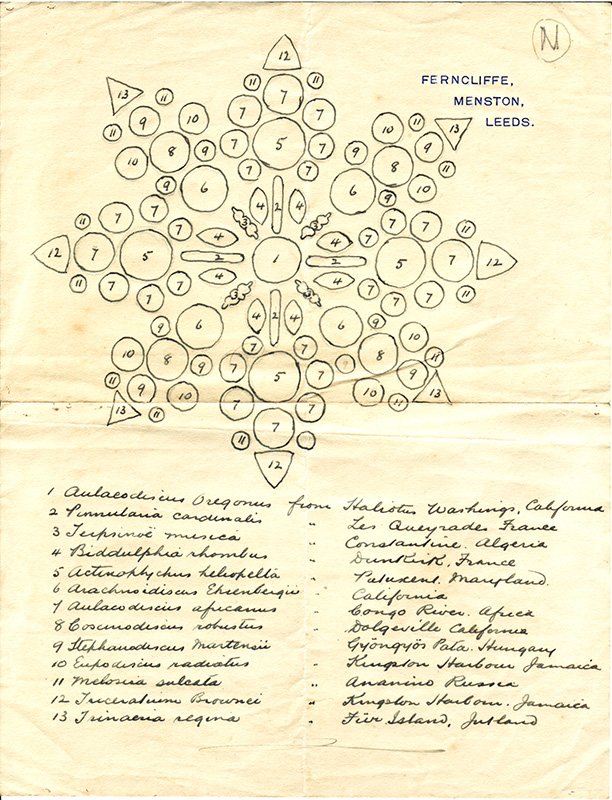 N
FERNCLIFFE,
MENSTON,
LEEDS.
1 Aulacodiscus Oregonus from Haliotus Washings, California
2 Pinnularia cardinalis " Les Queyrades France
3 Terpsinoë musica " Constantine. Algeria
4 Biddulphia rhombus " Dunkirk, France
5 Actinophychus heliopelta " Patuxent. Maryland.
6 Arachnoidiscus Ehrenbergii " California
7 Aulacodiscus africanus " Congo River. Africa
8 Coscinodiscus robustus " Dolgeville California
9 Stephanodiscus Martensii " Gyöngyös Pata. Hungary
10 Eupodiscus radiatus " Kingston Harbour Jamaica
11 Melosia sulcata " Ananino Russia
12 Triceratium Brownei " Kingston Harbour. Jamaica
13 Trinacria regina " Für Island, Jutland